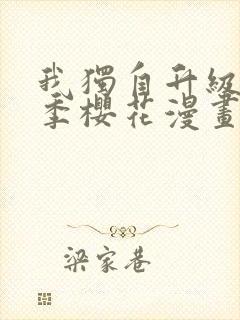 我獨自升級
季櫻花漫畫
梁家巷